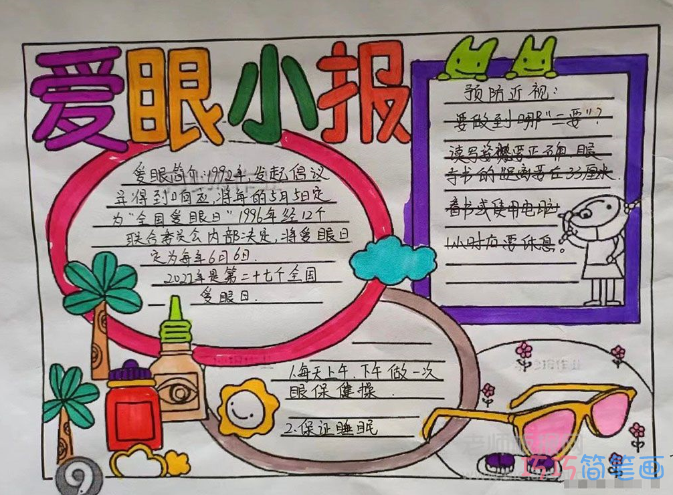 爱眼小报
爱眼简介:1992年发起倡议
并得到响应,将每的5月5日定
为"全国爱眼日"1996年经12个
联合 委员会内部决定,将爱眼日
定为每年6月6日.
2022年是第二十七个全国
爱眼日.
预防近视:
要做到哪"二要"?
读写姿 要正确,眼
与书的距离要在33厘米
看书或使用电脑
1小时后要休息。
1.每天上午.下午做一次
眼保健操.
2.保证睡眠
巧巧简笔画